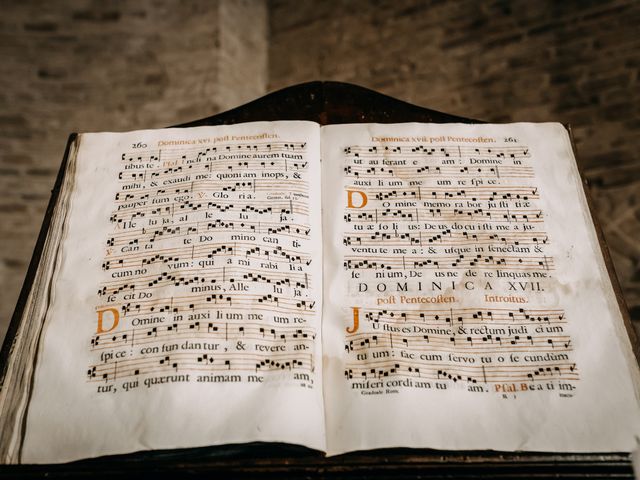 260 Dominica xvi. post Pentecosten.
tibus te. Psal. Incli na Domine aurem tuam
mihi, & exaudi me: quoniam inops, &
pauper sum ego. ℣. Glo ria.
Alle lu ja, al le lu ja.
℣ Can ta te Do mino can ti-
cum no vum: qui a mi rabi li a
fe cit Do minus, Alle lu ja.
DOmine in auxi li um me um re-
spi ce: con fun dan tur, & revere an-
tur, qui quærunt animam me am,
Dominica xvii. post Pentecosten. 261
ut au ferant e am: Domine in
auxi li um me um re spi ce.
DOmine memo ra bor justi tiæ
tu æ so li us: De us docu isti me a ju-
ventu te me a: & usque in senectam &
se ni um, De us ne de re linquas me.
DOMINICA XVII.
post Pentecosten. Introitus.
JUstus es Domine, & rectum judi ci um
tu um: fac cum servo tu o se cundùm
miseri cordi am tu am. Psal. Bea ti im-
Graduale Rom. R 3